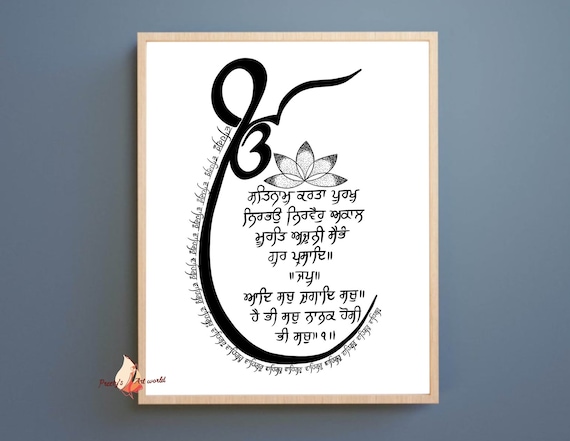 ੴ
ਸਤਿਨਾਮੁ ਕਰਤਾ ਪੁਰਖੁ
ਨਿਰਭਉ ਨਿਰਵੈਰੁ ਅਕਾਲ
ਮੂਰਤਿ ਅਜੂਨੀ ਸੈਭੰ
ਗੁਰ ਪ੍ਰਸਾਦਿ॥
॥ਜਪੁ॥
ਆਦਿ ਸਚੁ ਜੁਗਾਦਿ ਸਚੁ॥
ਹੈ ਭੀ ਸਚੁ ਨਾਨਕ ਹੋਸੀ
ਭੀ ਸਚੁ॥੧॥
Art world